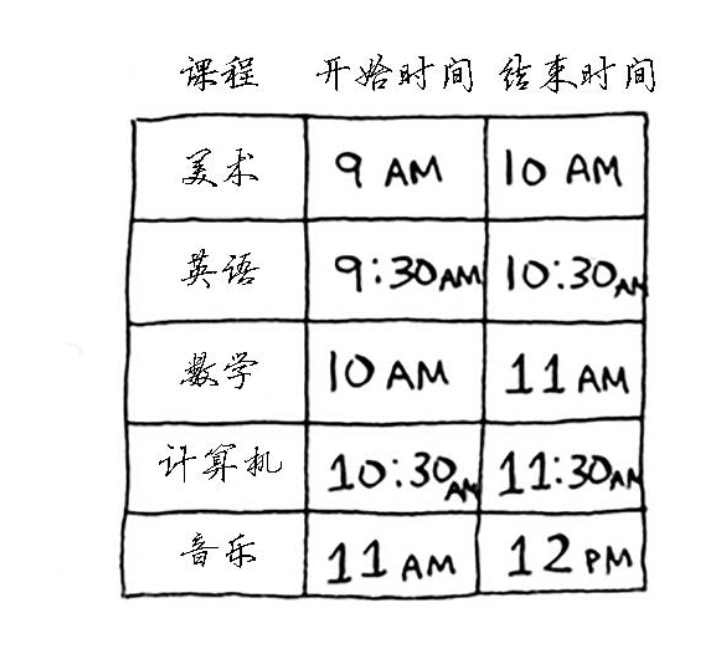 课程 开始时间 结束时间
美术 9 AM 10 AM
英语 9:30AM 10:30AM
数学 10 AM 11 AM
计算机 10:30AM 11:30AM
音乐 11 AM 12 PM